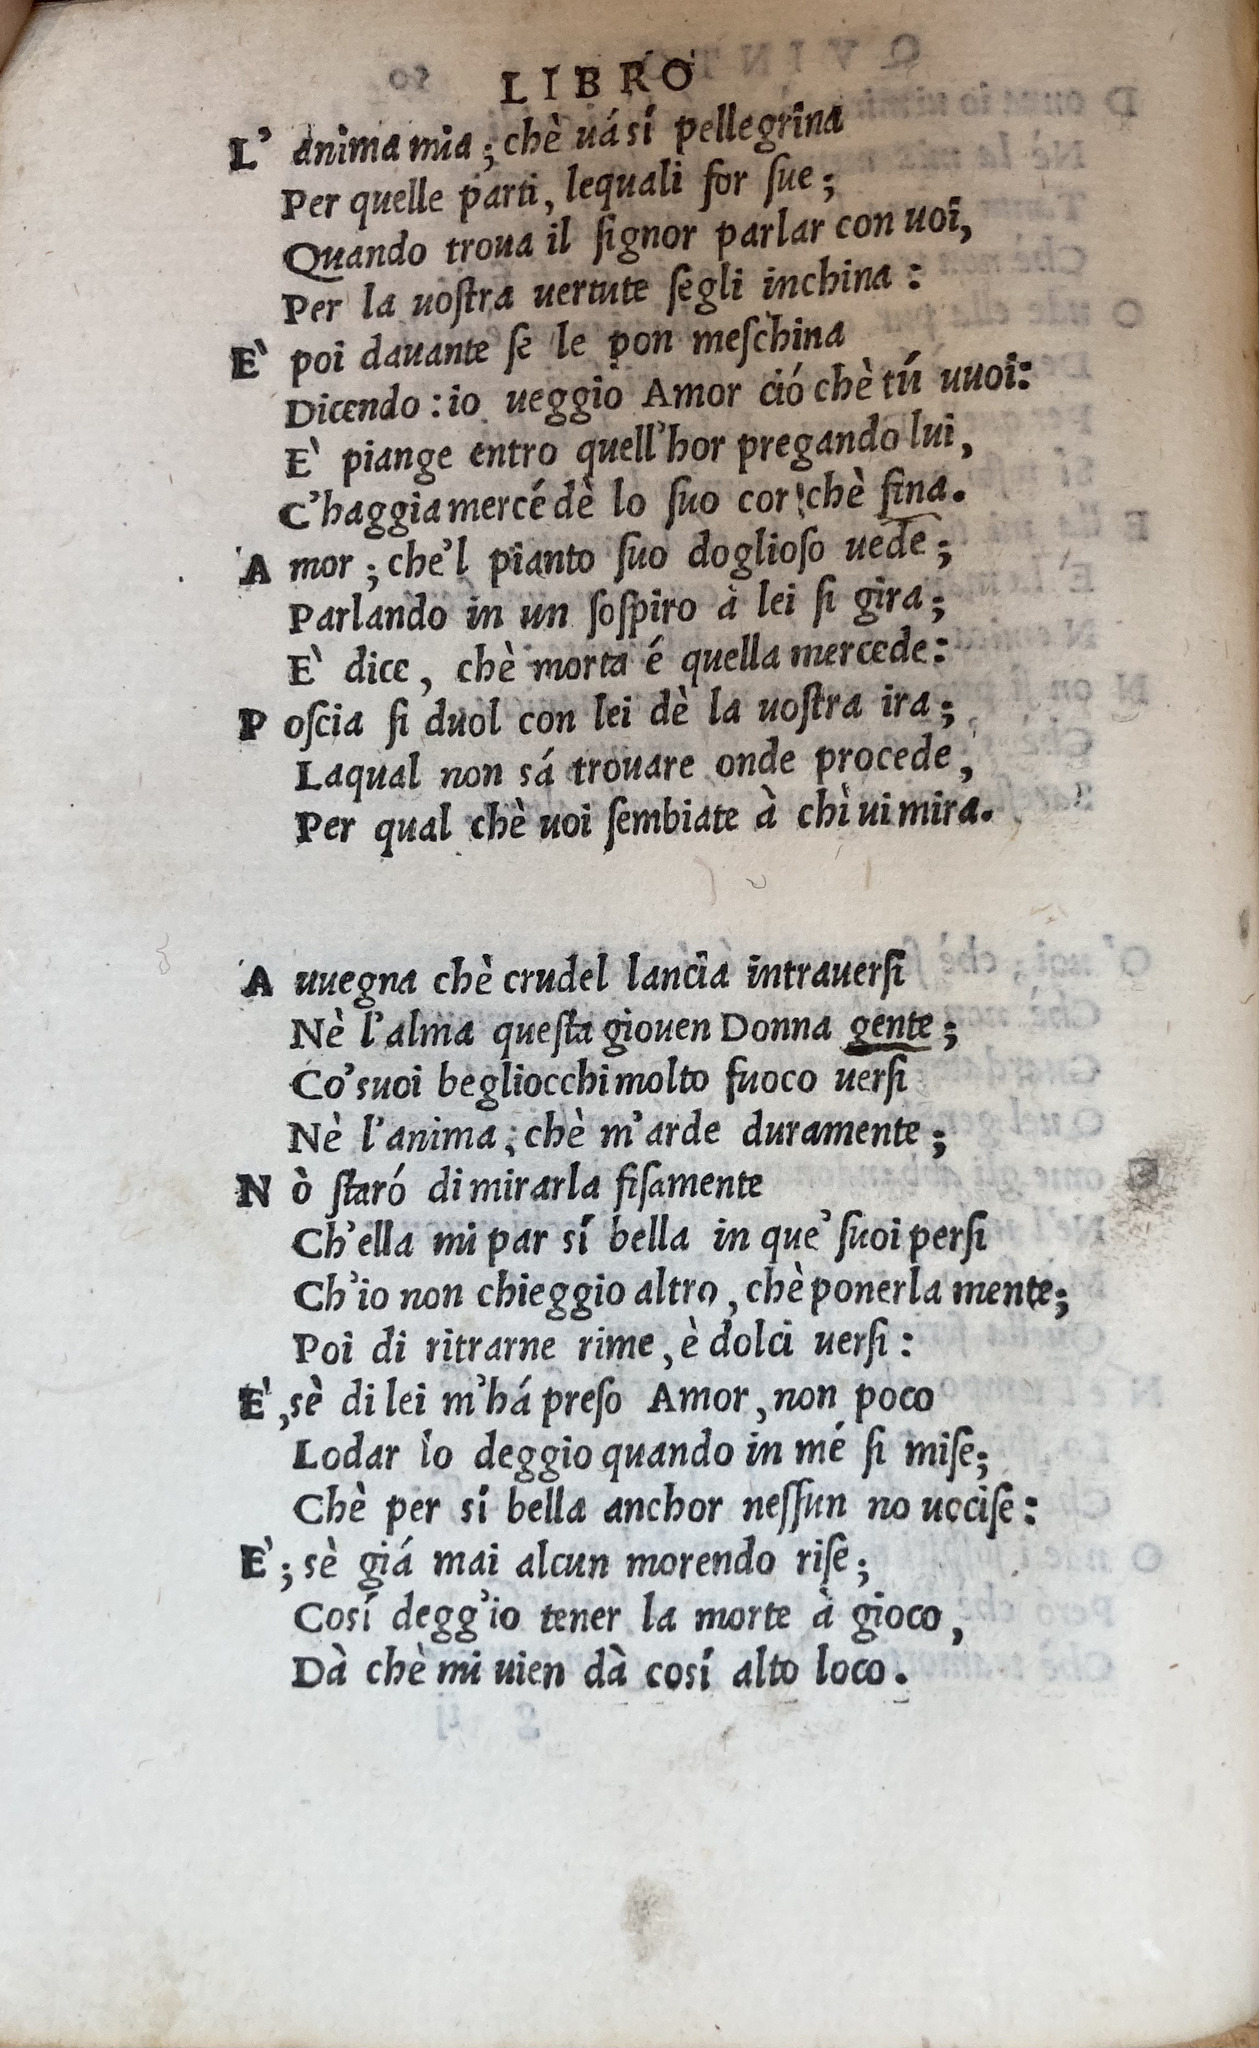 LIBRO
L' anima mia; chè uá sí pellegrina
Per quelle parti, lequali for sue;
Quando troua il signor parlar con uoi,
Per la uostra uertute segli inchina:
E' poi dauante se le pon meschina
Dicendo: io ueggio Amor ció chè tú uuoi:
E' piange entro quell'hor pregando lui,
C'haggia mercé dè lo suo cor chè fina.
A mor; che'l pianto suo doglioso uede;
Parlando in un sospiro à lei si gira;
E' dice, chè morta é quella mercede:
P oscia si duol con lei dè la uostra ira;
Laqual non sá trouare onde procede,
Per qual chè uoi sembiate à chì ui mira.
A uuegna chè crudel lancia intrauersi
Nè l'alma questa giouen Donna gente;
Co'suoi begliocchi molto fuoco uersi
Nè l'anima, chè m'arde duramente;
N ò staró di mirarla fisamente
Ch'ella mi par sí bella in que' suoi persi
Ch'io non chieggio altro, chè ponerla mente;
Poi di ritrarne rime, è dolci uersi:
E', sè di lei m'há preso Amor, non poco
Lodar lo deggio quando in mé si mise;
Chè per sí bella anchor nessun no uccise:
E'; sè giá mai alcun morendo rise;
Cosí degg'io tener la morte à gioco,
Dà chè mi uien dà cosí alto loco.